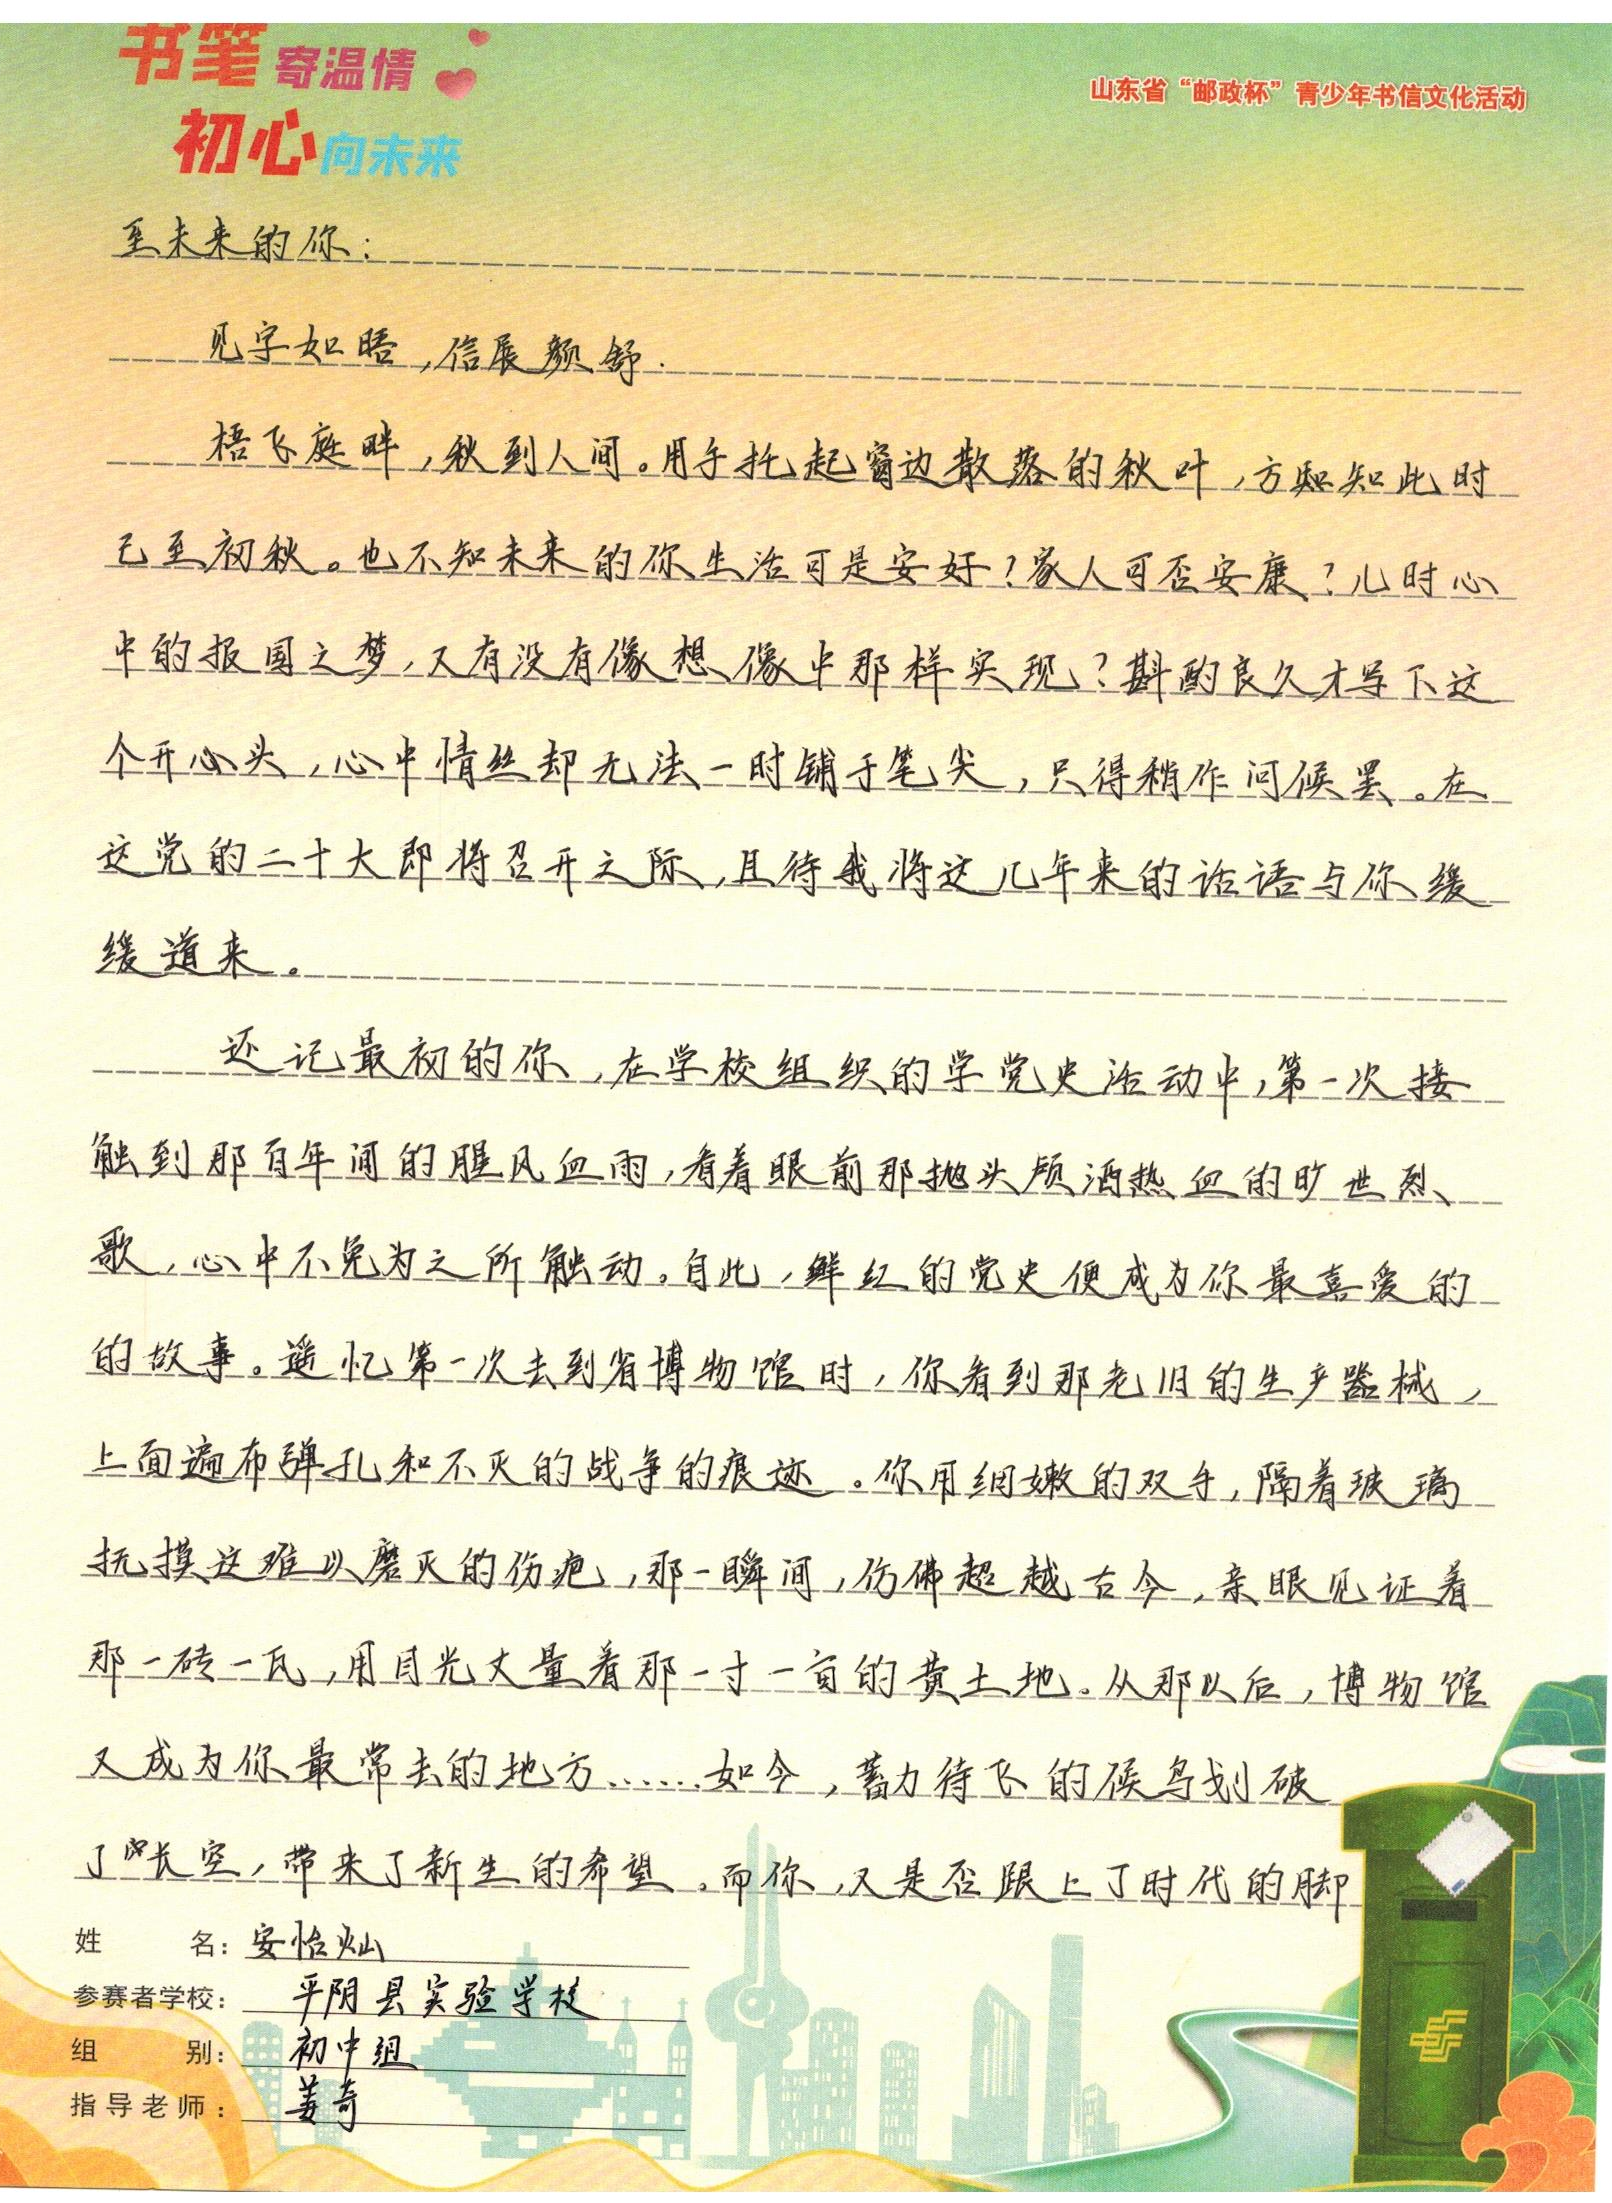 书笔寄温情
初心向未来
山东省“邮政杯”青少年书信文化活动
至未来的你：
见字如晤，信展颜舒.
梧飞庭畔，秋到人间。用手托起窗边散落的秋叶，方知知此时
已至初秋。也不知未来的你生活可是安好？家人可否安康？儿时心
中的报国之梦，又有没有像想像中那样实现？斟酌良久才写下这
个开心头，心中情丝却无法一时铺于笔尖，只得稍作问候罢。在
这党的二十大即将召开之际，且待我将这几年来的话语与你缓
缓道来。
还记最初的你，在学校组织的学党史活动中，第一次接
触到那百年间的腥风血雨，看着眼前那抛头颅洒热血的旷世烈
歌，心中不免为之所触动。自此，鲜红的党史便成为你最喜爱的
的故事。遥忆第一次去到省博物馆时，你看到那老旧的生产器械，
上面遍布弹孔和不灭的战争的痕迹。你用细嫩的双手，隔着玻璃
抚摸这难以磨灭的伤疤，那一瞬间，仿佛超越古今，亲眼见证着
那一砖一瓦，用目光丈量着那一寸一亩的黄土地。从那以后，博物馆
又成为你最常去的地方……如今，蓄力待飞的候鸟划破
了长空，带来了新生的希望。而你，又是否跟上了时代的脚
姓名：安怡灿
参赛者学校：平阴县实验学校
组别：初中组
指导老师：姜奇